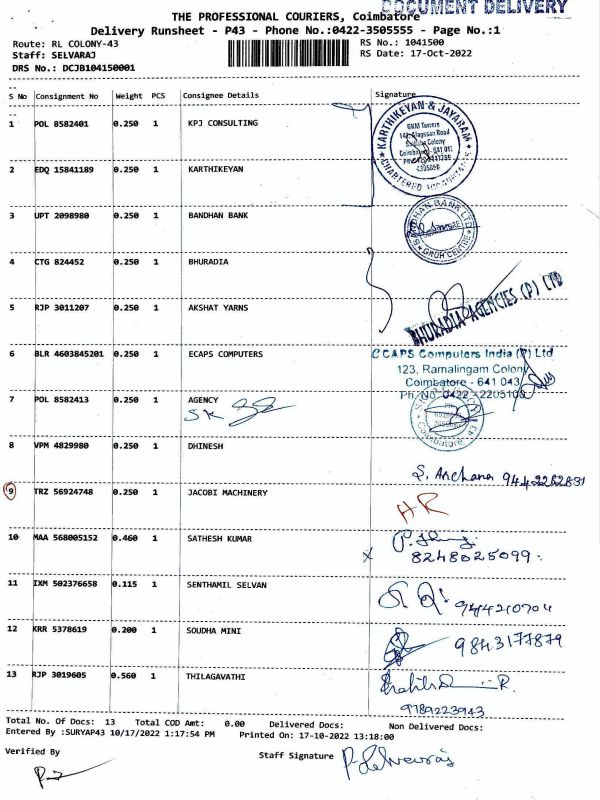 DOCUMENT DELIVERY
THE PROFESSIONAL COURIERS, Coimbatore
Delivery Runsheet - P43 - Phone No.:0422-3505555 - Page No.:1
Route: RL COLONY-43
RS No.: 1041500
Staff: SELVARAJ
RS Date: 17-Oct-2022
DRS No.: DCJB104150001
S No Consignment No Weight PCS Consignee Details Signature
1 POL 8582401 0.250 1 KPJ CONSULTING
KARTHIKEYAN & JAYARAM
GNM Towers
Colony
CHARTERED ACCOUNTANTS
2 EDQ 15841189 0.250 1 KARTHIKEYAN
3 UPT 2098980 0.250 1 BANDHAN BANK
BANDHAN BANK LTD
GRUH CENTRE
4 CTG 824452 0.250 1 BHURADIA
5 RJP 3011207 0.250 1 AKSHAT YARNS
BHURADIA AGENCIES (P) LTD
6 BLR 4603845201 0.250 1 ECAPS COMPUTERS
CCAPS Computers India (P) Ltd
123, Ramalingam Colony
Coimbatore - 641 043
Ph. No 0422 - 2205100
7 POL 8582413 0.250 1 AGENCY
SK
Coimbatore - 43
8 VPM 4829980 0.250 1 DHINESH
S. Archana 9442282831
9 TRZ 56924748 0.250 1 JACOBI MACHINERY
HR
10 MAA 568005152 0.460 1 SATHESH KUMAR
x 8248025099
11 IXM 502376658 0.115 1 SENTHAMIL SELVAN
12 KRR 5378619 0.200 1 SOUDHA MINI
9843177879
13 RJP 3019605 0.560 1 THILAGAVATHI
9789223943
Total No. Of Docs: 13 Total COD Amt: 0.00 Delivered Docs: Non Delivered Docs:
Entered By :SURYAP43 10/17/2022 1:17:54 PM Printed On: 17-10-2022 13:18:00
Verified By
Staff Signature P. Selvaraj